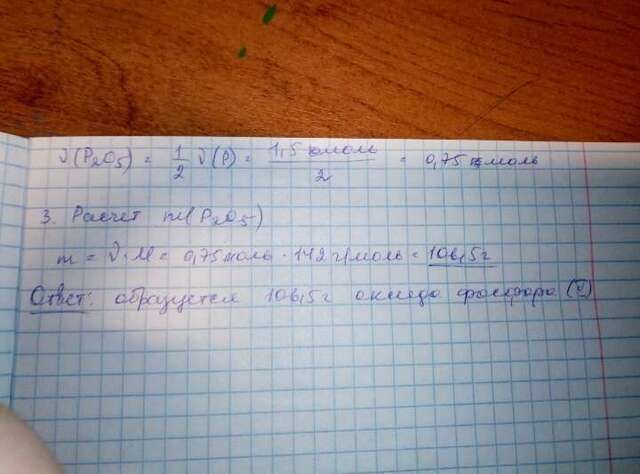 ν(P₂O₅) = 1/2 ν(P) = 1,5 моль/2 = 0,75 моль
3. Расчет m(P₂O₅)
m = ν·M = 0,75 моль · 142 г/моль = 106,5 г
Ответ: образуется 106,5 г оксида фосфора (V)